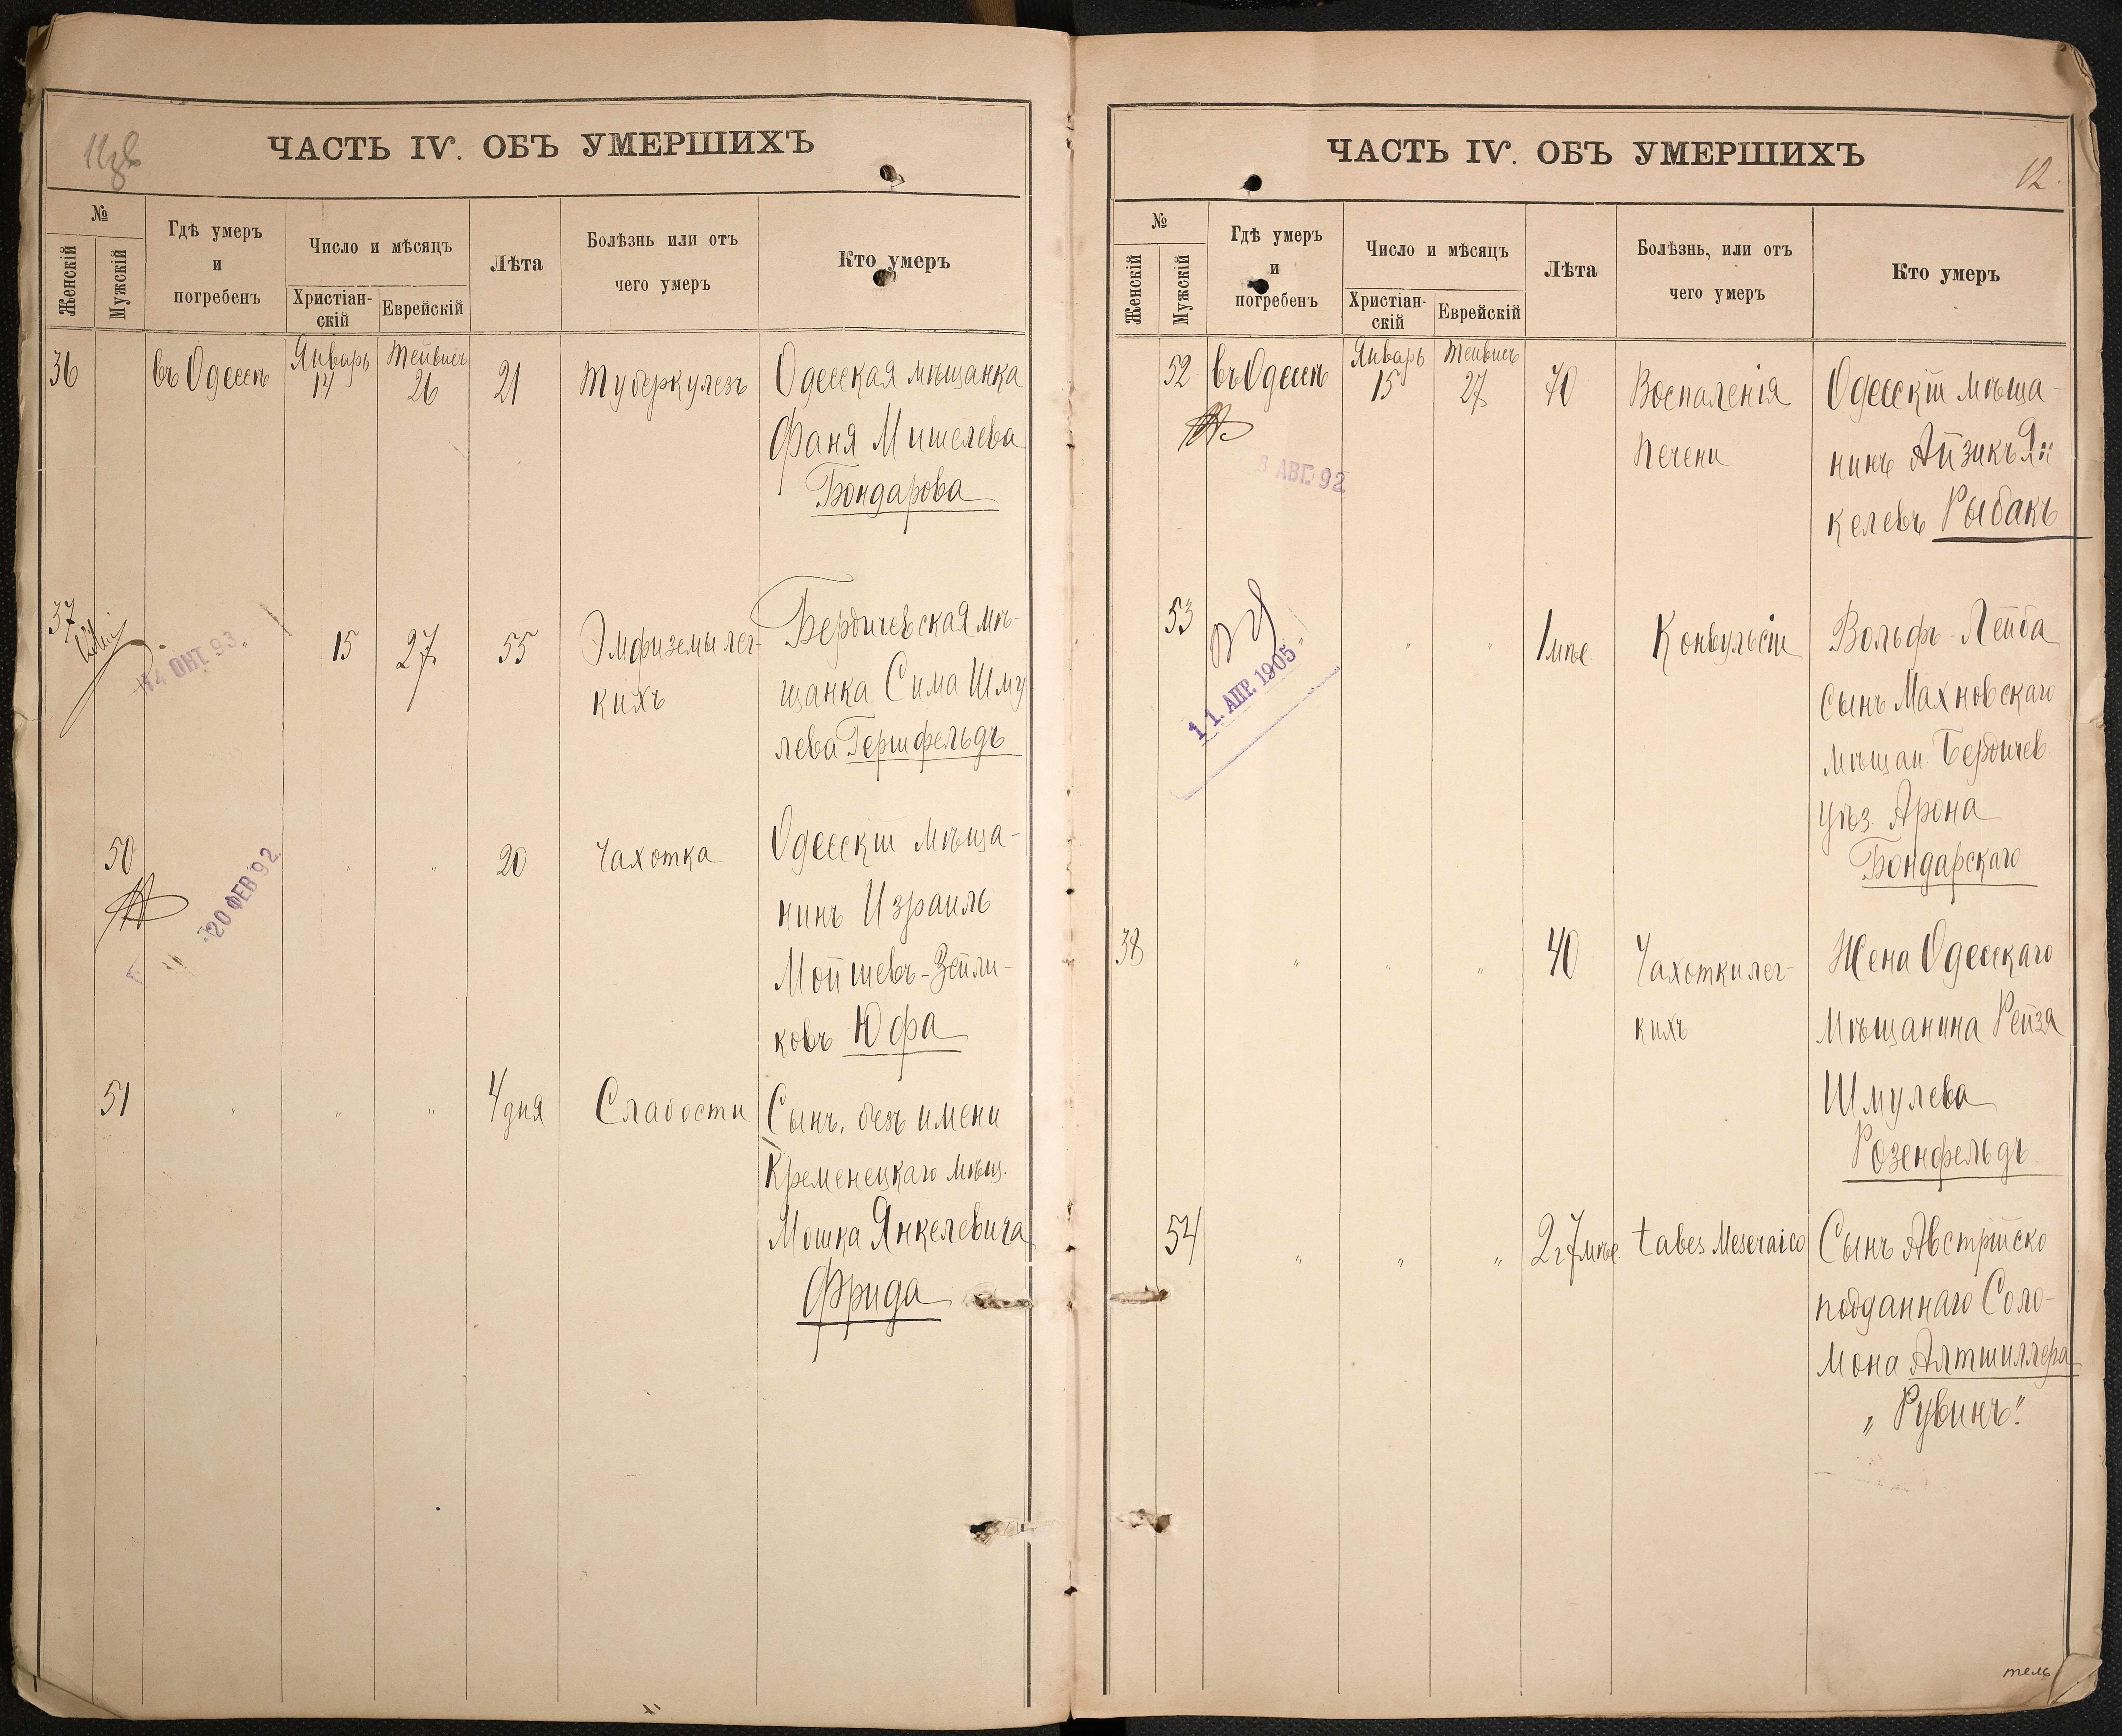 ЧАСТЬ IV. ОБЪ УМЕРШИХЪ
№
Женскій
Мужскій
Гдѣ умеръ
и
погребенъ
Число и мѣсяцъ
Христіан-
скій
Еврейскій
Лѣта
Болѣзнь или отъ
чего умеръ
Кто умеръ
36 въ Одессѣ Январь 14 Тейвисъ 26 21 Туберкулезъ Одесская мѣщанка
Фаня Мишелева
Бондарова
37 " 15 27 55 Эмфиземы лег- Бердичевская мѣ-
кихъ щанка Сима Шму
лева Гершфельдъ
14 ОКТ. 93
50 " " 20 Чахотка Одесскій мѣща-
нинъ Израиль
Мойшевъ-Зейли-
ковъ Юфа
20 ФЕВ 92.
51 " " " 4 дня Слабости Сынъ, безъ имени
Кременецкаго мѣщ.
Мошка Янкелевича
Фрида
ЧАСТЬ IV. ОБЪ УМЕРШИХЪ
12.
№
Женскій
Мужскій
Гдѣ умеръ
и
погребенъ
Число и мѣсяцъ
Христіан-
скій
Еврейскій
Лѣта
Болѣзнь, или отъ
чего умеръ
Кто умеръ
52 въ Одессѣ Январь 15 Тейвисъ 27 70 Воспаленія Одесскій мѣща-
Печени нинъ Айзикъ Ян
келевъ Рыбакъ
8 АВГ. 92
53 " " " 1 мѣс. Конвульсіи Вольфъ-Лейба
сынъ Махновскаго
мѣщан. Бердичев.
уѣз. Арона
Бондарскаго
11. АПР. 1905
38 " " " 40 Чахотки лег- Жена Одесскаго
кихъ Мѣщанина Рейзя
Шмулева
Розенфельдъ
54 " " " 2 г 7 мѣс. tabes Meseraico Сынъ Австрійско
подданнаго Соло-
мона Алтшиллера
„Рувинъ"
тель